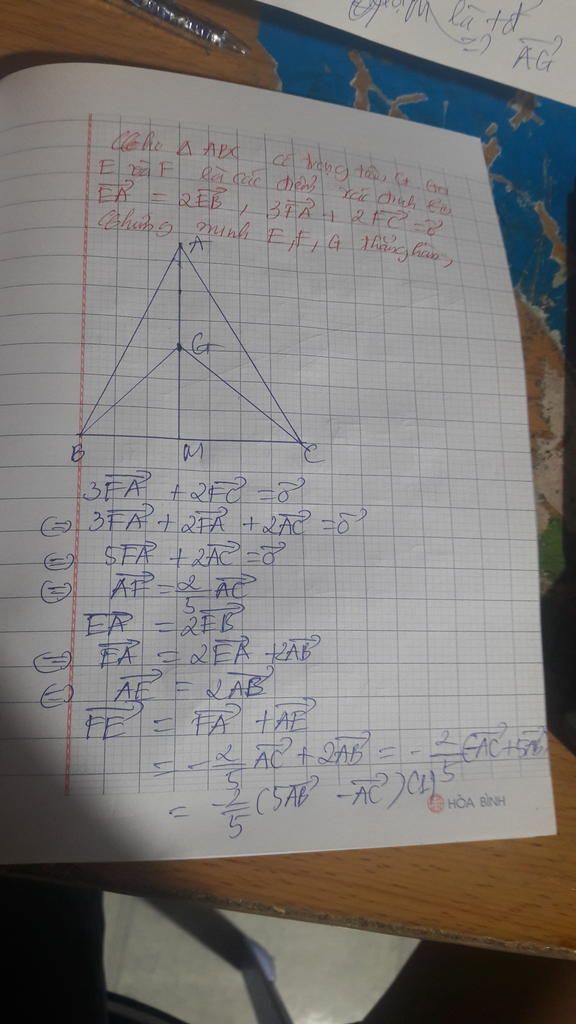 là
⇒ AG
Cho Δ ABC có trọng tâm G
E và F là các điểm xác định
EA = 2EB, 3FA + 2FC = 0
Chứng minh E, F, G thẳng hàng
A
G
B M C
3FA + 2FC = 0
⇔ 3FA + 2FA + 2AC = 0
⇔ 5FA + 2AC = 0
⇔ AF = 2/5 AC
EA = 2EB
⇔ EA = 2EA + 2AB
⇔ AE = 2AB
FE = FA + AE
= -2/5 AC + 2AB = -2/5 (-AC + 5AB
= 2/5 (5AB - AC) (1)
HÒA BÌNH